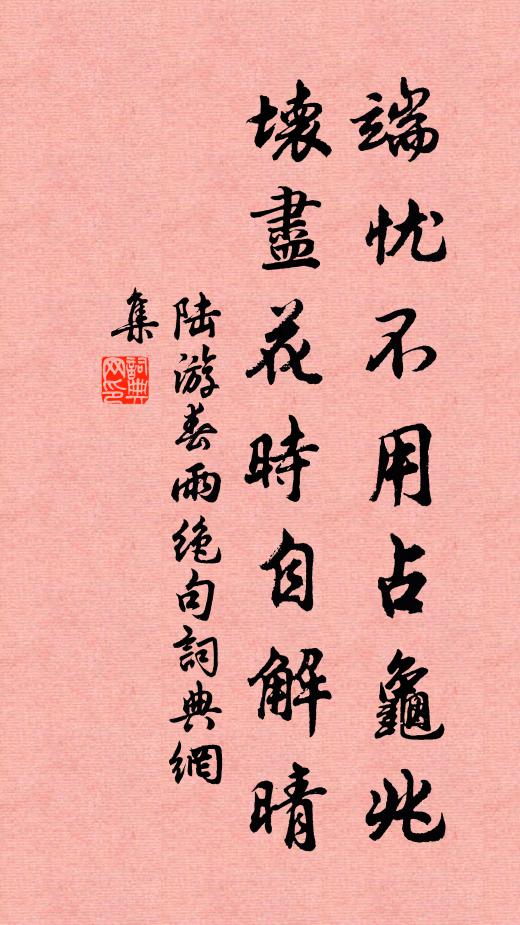 端忧不用占龜兆
壞盡花時自解晴
陆游春雨绝句詞典網
集
詞典
网印